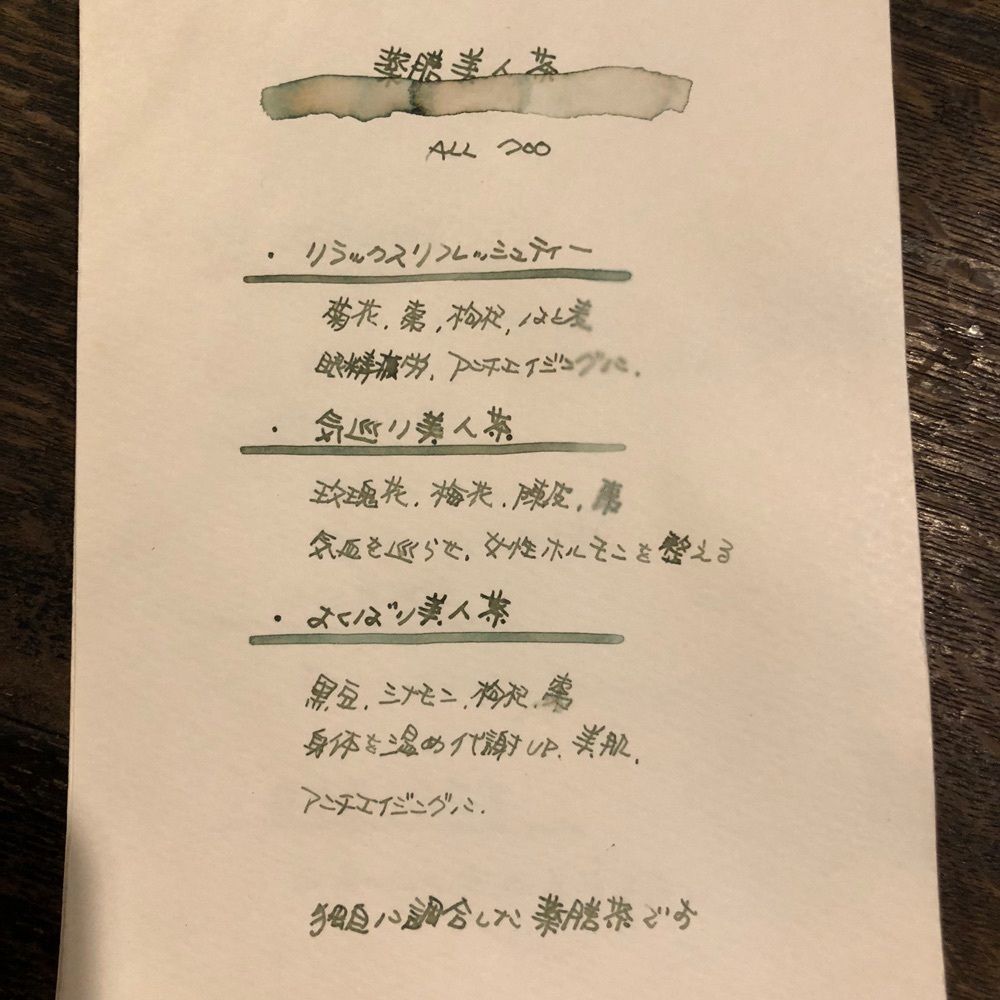 薬膳美人茶
ALL 700
・リラックスリフレッシュティー
菊花、棗、枸杞、はと麦
眼精疲労、アンチエイジングに、
・気巡り美人茶
玫瑰花、梅花、陳皮、棗
気血を巡らせ、女性ホルモンを整える
・よくばり美人茶
黒豆、シナモン、枸杞、棗
身体を温め代謝UP、美肌、
アンチエイジングに、
独自に調合した薬膳茶です